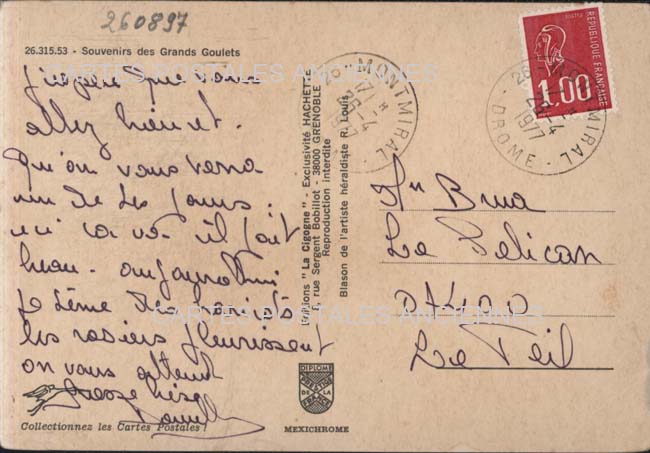 260897
26.315.53 - Souvenirs des Grands Goulets
j'espère que vous
allez bien et.
qu'on vous verra
un de ces jours.
ici ca va. il fait
beau. aujourd'hui
je sème des haricots
les rosiers fleurissent
on vous attend
grosse bise
Collectionnez les Cartes Postales !
Editions "La Cigogne" - Exclusivité HACHETTE
5, rue Sergent Bobillot - 38000 GRENOBLE
Reproduction interdite
Blason de l'artiste héraldiste R. Louis
DIPLOME
PRESTIGE
DE LA
FRANCE
MEXICHROME
26 MONTMIRAL
1977
26 MONTMIRAL
1977
DROME
POSTES
REPUBLIQUE FRANÇAISE
1,00
Mr Brua
Le Pelican
07400
Le Teil
CARTES POSTALES ANCIENNES
CARTES POSTALES ANCIENNES